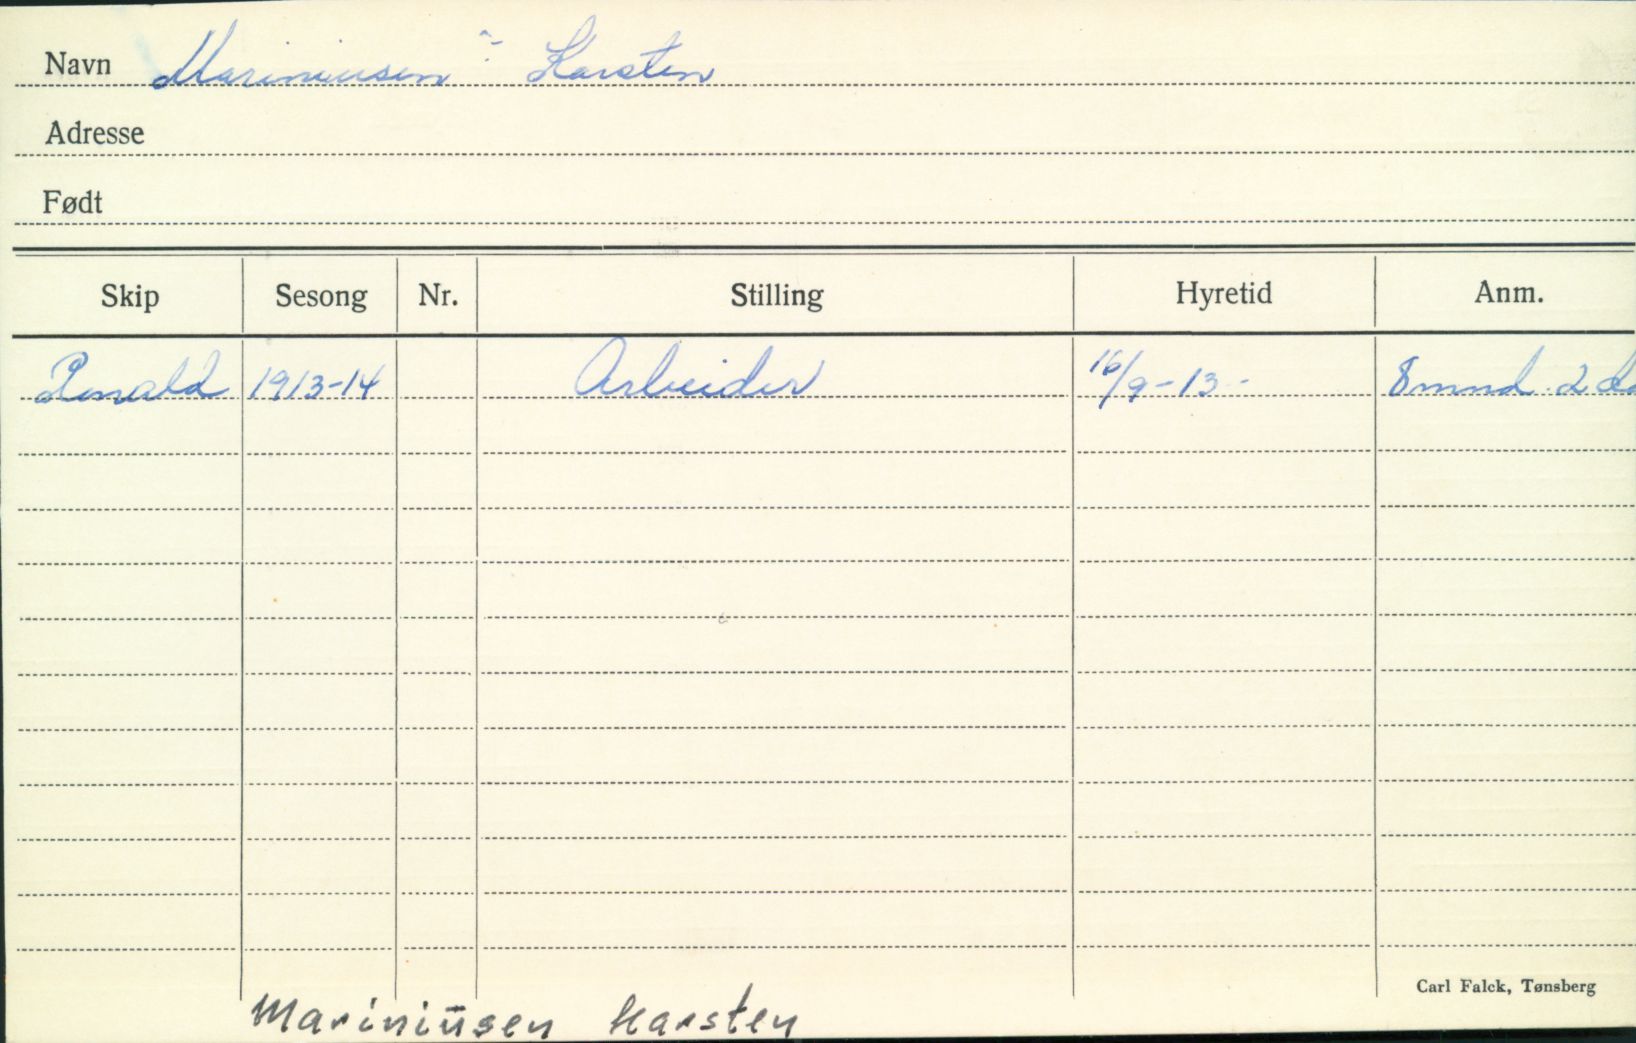 Navn Mariniusen Karsten
Adresse
Født
Skip Sesong Nr. Stilling Hyretid Anm.
Ronald 1913-14 Arbeider 16/9-13- 8 mnd. 2 da
Carl Falck, Tønsberg
Mariniusen Karsten